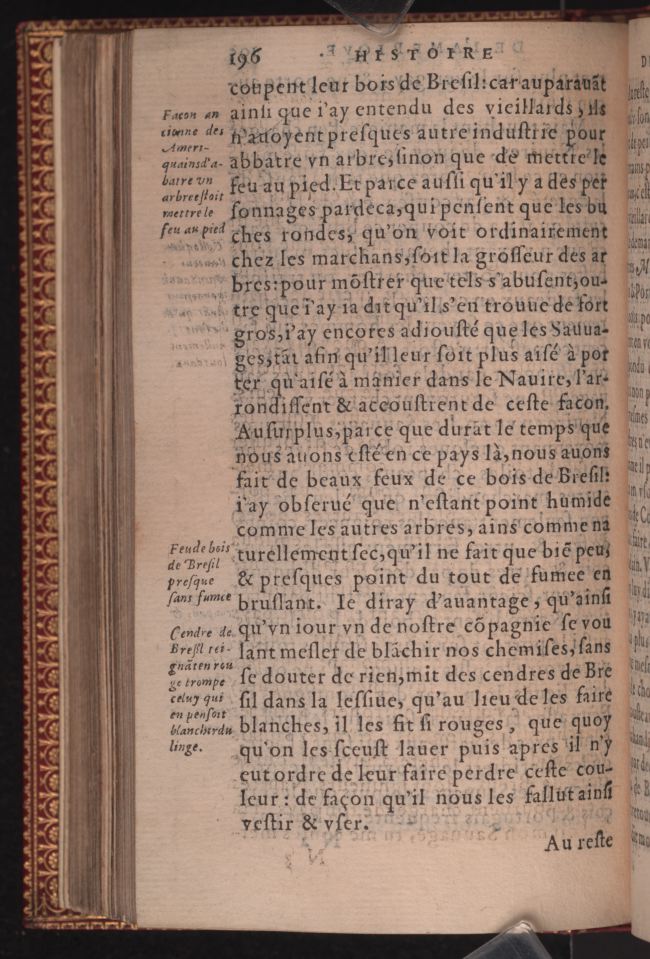 196
HISTOIRE
coupent leur bois de Bresil: car auparauāt
ainsi que i'ay entendu des vieillards, ils
n'auoyent presques autre industrie pour
abbatre vn arbre, sinon que de mettre le
feu au pied. Et parce aussi qu'il y a des per
sonnages pardeca, qui pensent que les bu
ches rondes, qu'on voit ordinairement
chez les marchans, soit la grosseur des ar
bres: pour mōstrer que tels s'abusent, ou-
tre que i'ay ia dit qu'il s'en trouue de fort
gros, i'ay encores adiousté que les Sauua-
ges, tāt afin qu'il leur soit plus aisé à por
ter qu'aisé à manier dans le Nauire, l'ar-
rondissent & accoustrent de ceste facon.
Au surplus, parce que durāt le temps que
nous auons esté en ce pays là, nous auons
fait de beaux feux de ce bois de Bresil:
i'ay obserué que n'estant point humide
comme les autres arbres, ains comme na
turellement sec, qu'il ne fait que biē peu,
& presques point du tout de fumee en
bruslant. Ie diray d'auantage, qu'ainsi
qu'vn iour vn de nostre cōpagnie se vou
lant mesler de blāchir nos chemises, sans
se douter de rien, mit des cendres de Bre
sil dans la lessiue, qu'au lieu de les faire
blanches, il les fit si rouges, que quoy
qu'on les sceust lauer puis apres il n'y
eut ordre de leur faire perdre ceste cou-
leur: de façon qu'il nous les fallut ainsi
vestir & vser.
Au reste
Facon an
cienne des
Ameri-
quains d'a-
batre vn
arbre estoit
mettre le
feu au pied
Feu de bois
de Bresil
presque
sans fumee
Cendre de
Bresil tei-
gnāt en rou
ge trompe
celuy qui
en pensoit
blanchir du
linge.